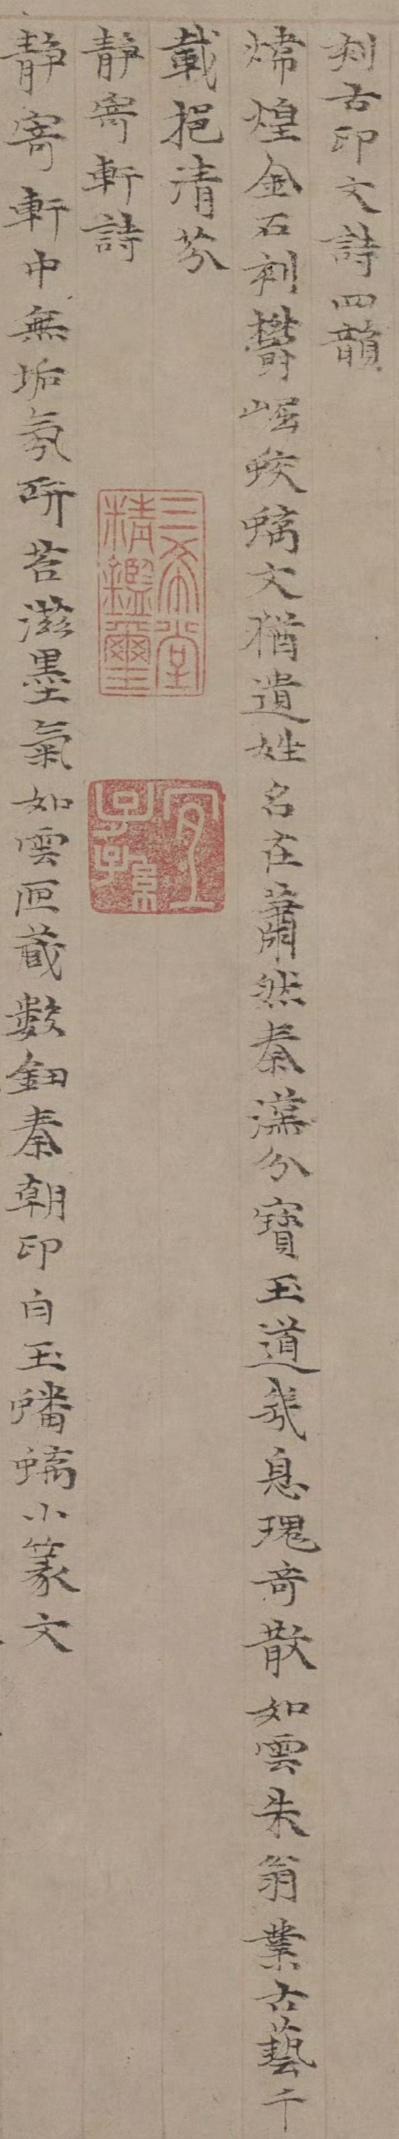 刻古印文詩四韻
煒煌金石刻鬱崛蛟螭文猶遺姓名在蕭然秦漢分寶玉道幾息瑰奇散如雲朱翁業古藝千
載挹清芬
三希堂精鑑璽
宜子孫
靜寄軒詩
靜寄軒中無垢氛研苔滋墨氣如雲匣藏數鈕秦朝印白玉蟠螭小篆文